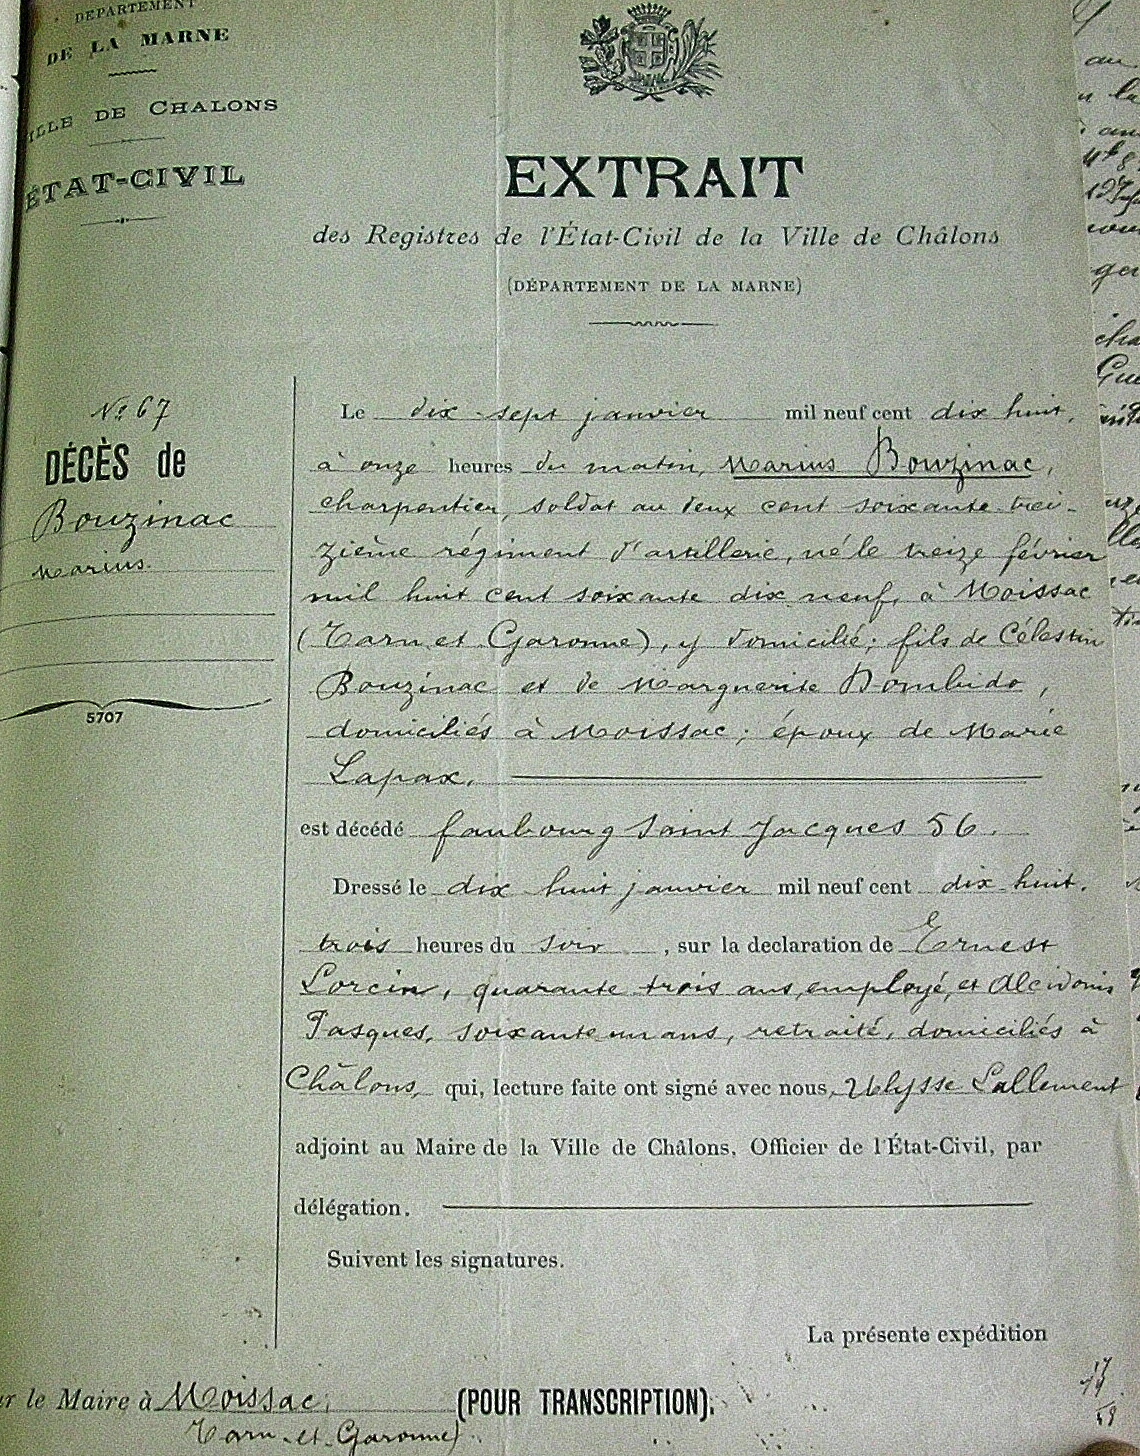 DÉPARTEMENT
DE LA MARNE
ILLE DE CHALONS
ÉTAT-CIVIL
EXTRAIT
des Registres de l'État-Civil de la Ville de Châlons
(DÉPARTEMENT DE LA MARNE)
No 67
DÉCÈS de
Bouzinac
Marius.
5707
Le dix sept janvier mil neuf cent dix huit,
à onze heures du matin, Marius Bouzinac,
charpentier, soldat au deux cent soixante trei-
zième régiment d'artillerie, né le treize février
mil huit cent soixante dix neuf, à Moissac
(Tarn et Garonne), y domicilié; fils de Célestin
Bouzinac et de Marguerite Dombido,
domiciliés à Moissac; époux de Marie
Lapax,
est décédé faubourg Saint Jacques 56.
Dressé le dix huit janvier mil neuf cent dix huit.
trois heures du soir, sur la declaration de Ernest
Lorcin, quarante trois ans, employé, et Alcidonis
Pasques, soixante un ans, retraité, domiciliés à
Châlons, qui, lecture faite ont signé avec nous, Ulysse Lallement
adjoint au Maire de la Ville de Châlons, Officier de l'État-Civil, par
délégation.
Suivent les signatures.
La présente expédition
r le Maire à Moissac, (POUR TRANSCRIPTION).
Tarn et Garonne)